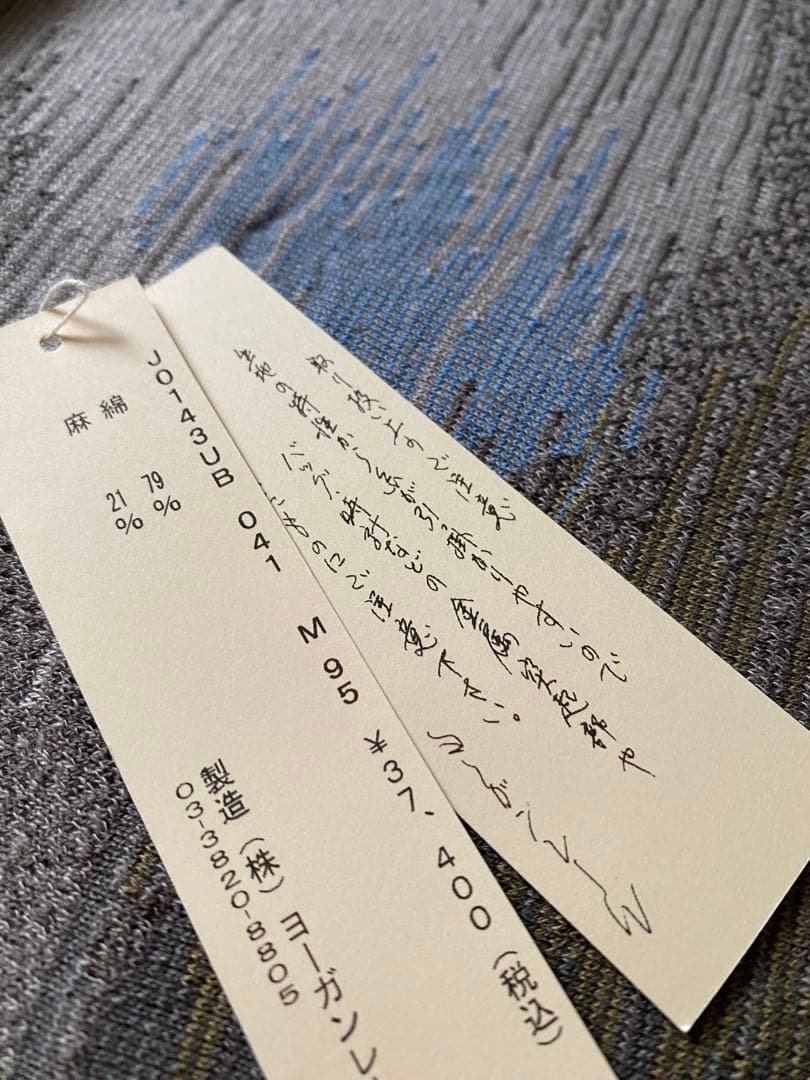 J0143UB 041 M 95 ¥37、400(税込)
綿 79%
麻 21%
製造(株)ヨーガンレ
03-3820-8805
取り扱い上のご注意
生地の特性から糸が引っ掛かりやすいので
バッグ、時計などの金属突起部や
ものにご注意下さい。
ヨーガンレール